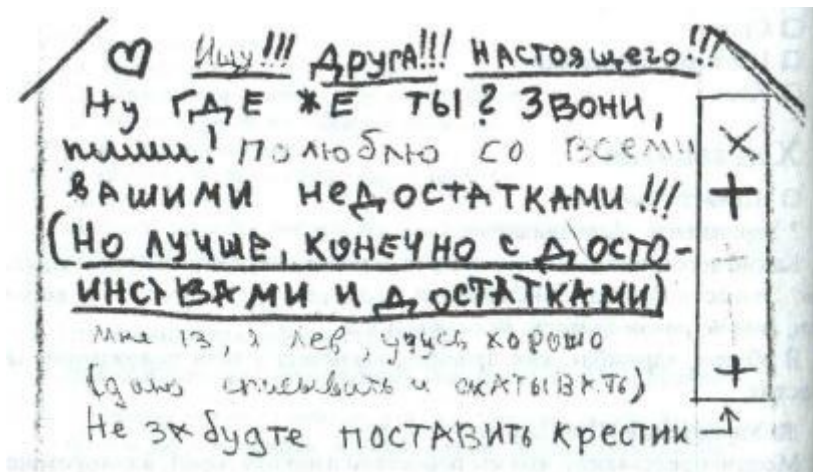 ♡ Ищу!!! Друга!!! Настоящего!!!
Ну ГДЕ ЖЕ ТЫ? ЗВОНИ,
пиши! Полюблю со всеми
вАШИМИ НеДОСТАТКАМИ!!!
(НО ЛУЧШЕ, КОНЕЧНО С ДОСТО-
ИНСТВАМИ И ДОСТАТКАМИ)
Мне 13, я лев, учусь хорошо
(даю списывать и скАТЫВАТЬ)
Не зАбудте ПОСТАВИТЬ крестик →